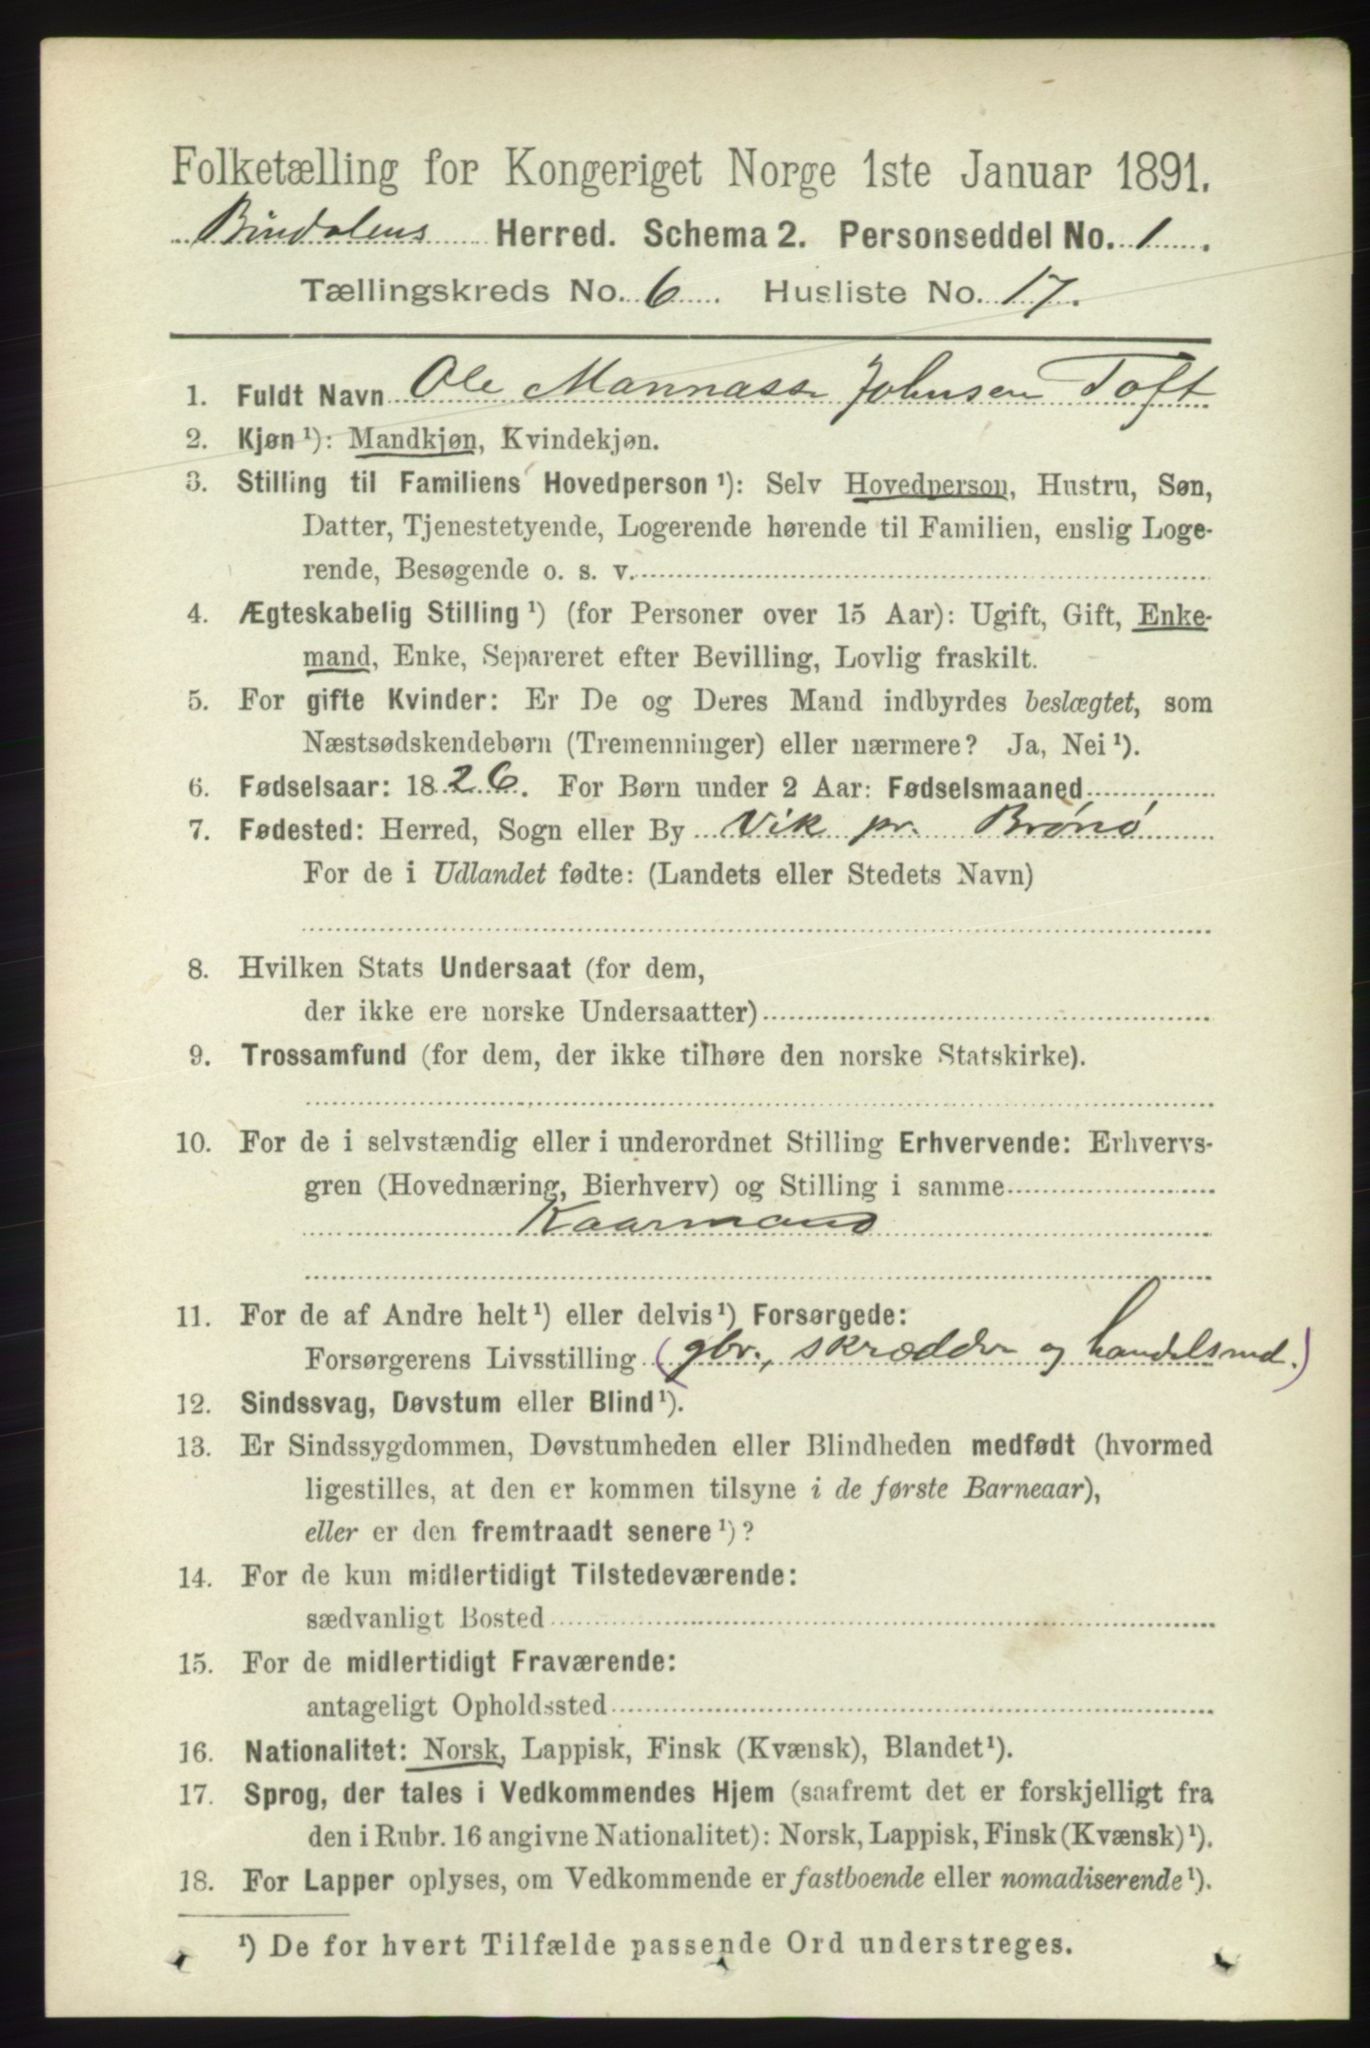 Folketælling for Kongeriget Norge 1ste Januar 1891.
Bindalens Herred. Schema 2. Personseddel No. 1.
Tællingskreds No. 6. Husliste No. 17.
1. Fuldt Navn Ole Mannasse Johnsen Toft
2. Kjøn ¹): Mandkjøn, Kvindekjøn.
3. Stilling til Familiens Hovedperson ¹): Selv Hovedperson, Hustru, Søn,
Datter, Tjenestetyende, Logerende hørende til Familien, enslig Loge-
rende, Besøgende o. s. v.
4. Ægteskabelig Stilling ¹) (for Personer over 15 Aar): Ugift, Gift, Enke-
mand, Enke, Separeret efter Bevilling, Lovlig fraskilt.
5. For gifte Kvinder: Er De og Deres Mand indbyrdes beslægtet, som
Næstsødskendebørn (Tremenninger) eller nærmere? Ja, Nei ¹).
6. Fødselsaar: 1826. For Børn under 2 Aar: Fødselsmaaned
7. Fødested: Herred, Sogn eller By Vik pr. Brønø
For de i Udlandet fødte: (Landets eller Stedets Navn)
8. Hvilken Stats Undersaat (for dem,
der ikke ere norske Undersaatter)
9. Trossamfund (for dem, der ikke tilhøre den norske Statskirke).
10. For de i selvstændig eller i underordnet Stilling Erhvervende: Erhvervs-
gren (Hovednæring, Bierhverv) og Stilling i samme
Kaarmand
11. For de af Andre helt ¹) eller delvis ¹) Forsørgede:
Forsørgerens Livsstilling (gbr., skrædder og handelsmd.)
12. Sindssvag, Døvstum eller Blind ¹).
13. Er Sindssygdommen, Døvstumheden eller Blindheden medfødt (hvormed
ligestilles, at den er kommen tilsyne i de første Barneaar),
eller er den fremtraadt senere ¹)?
14. For de kun midlertidigt Tilstedeværende:
sædvanligt Bosted
15. For de midlertidigt Fraværende:
antageligt Opholdssted
16. Nationalitet: Norsk, Lappisk, Finsk (Kvænsk), Blandet ¹).
17. Sprog, der tales i Vedkommendes Hjem (saafremt det er forskjelligt fra
den i Rubr. 16 angivne Nationalitet): Norsk, Lappisk, Finsk (Kvænsk) ¹).
18. For Lapper oplyses, om Vedkommende er fastboende eller nomadiserende ¹).
¹) De for hvert Tilfælde passende Ord understreges.